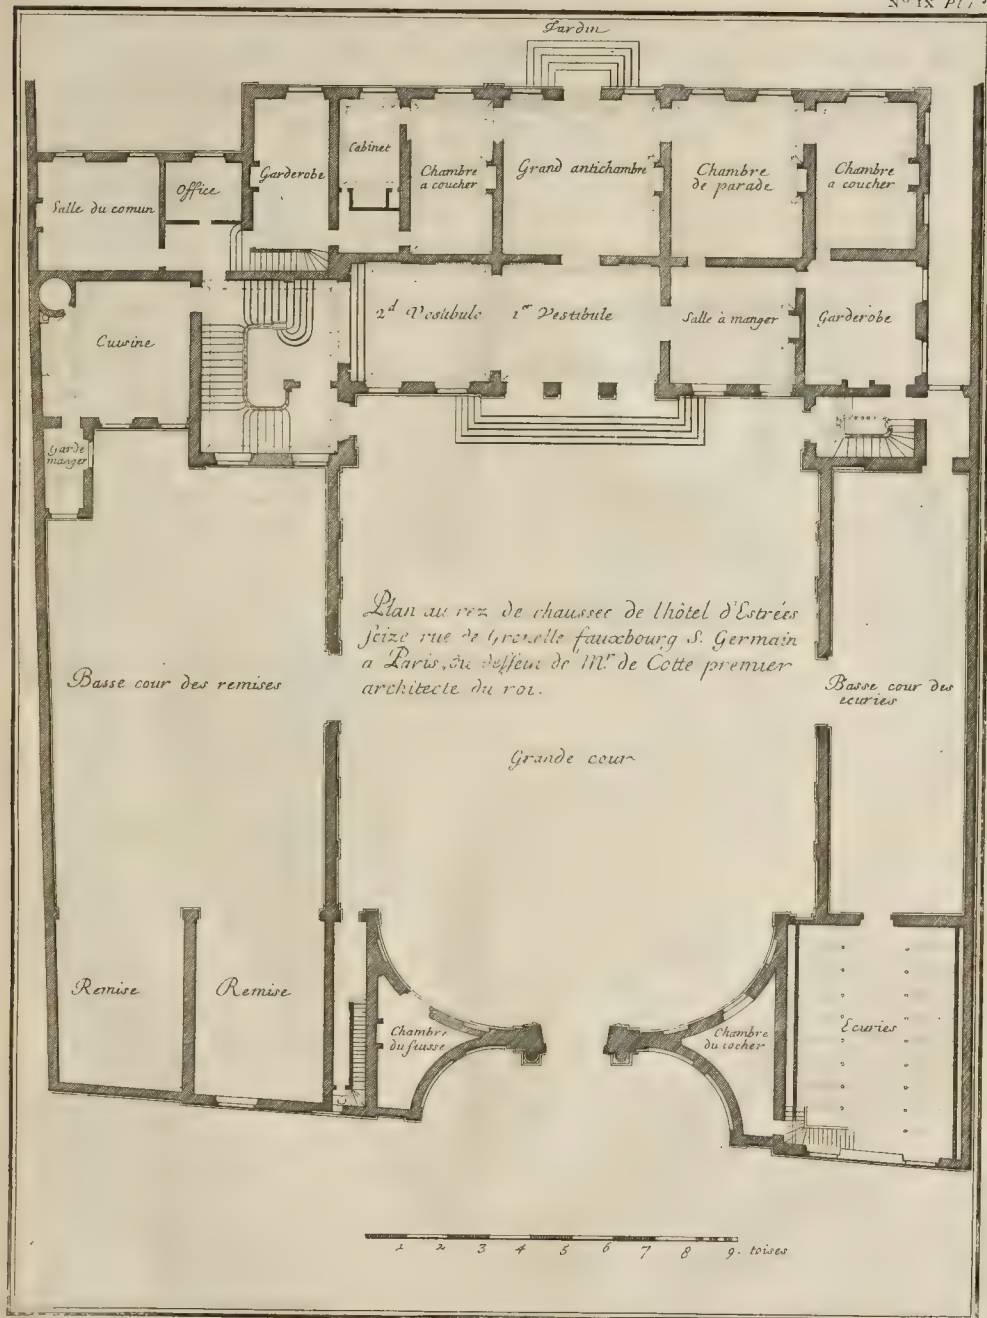 N° IX Pl
Jardin
Garderobe
Cabinet
Chambre
a coucher
Grand antichambre
Chambre
de parade
Chambre
a coucher
Salle du comun
Office
2d Vestibule
1er Vestibule
Salle à manger
Garderobe
Cuisine
Garde
manger
Plan au rez de chaussee de lhôtel d'Estrées
scize rue de Grenelle fauxbourg S. Germain
a Paris, du dessein de Mr. de Cotte premier
architecte du roi.
Basse cour des remises
Basse cour des
ecuries
Grande cour
Remise
Remise
Chambre
du suisse
Chambre
du cocher
Ecuries
1 2 3 4 5 6 7 8 9. toises